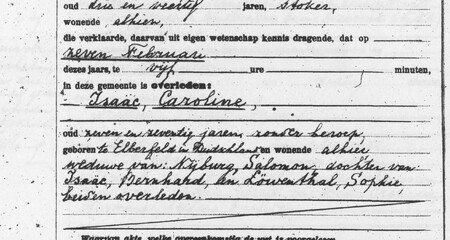 oud drie en veertig jaren, stoker,
wonende alhier,
die verklaarde, daarvan uit eigen wetenschap kennis dragende, dat op
zeven Februari
dezes jaars, te vijf ure minuten,
in deze gemeente is overleden:
Isaäc, Caroline,
oud zeven en zeventig jaren, zonder beroep,
geboren te Elberfeld in Duitschland en wonende alhier
weduwe van: Nijburg, Salomon, dochter van
Isaäc, Bernhard, en Löwenthal, Sophie,
beiden overleden.
Waarvan akte, welke overeenkomstig de wet is voorgelezen